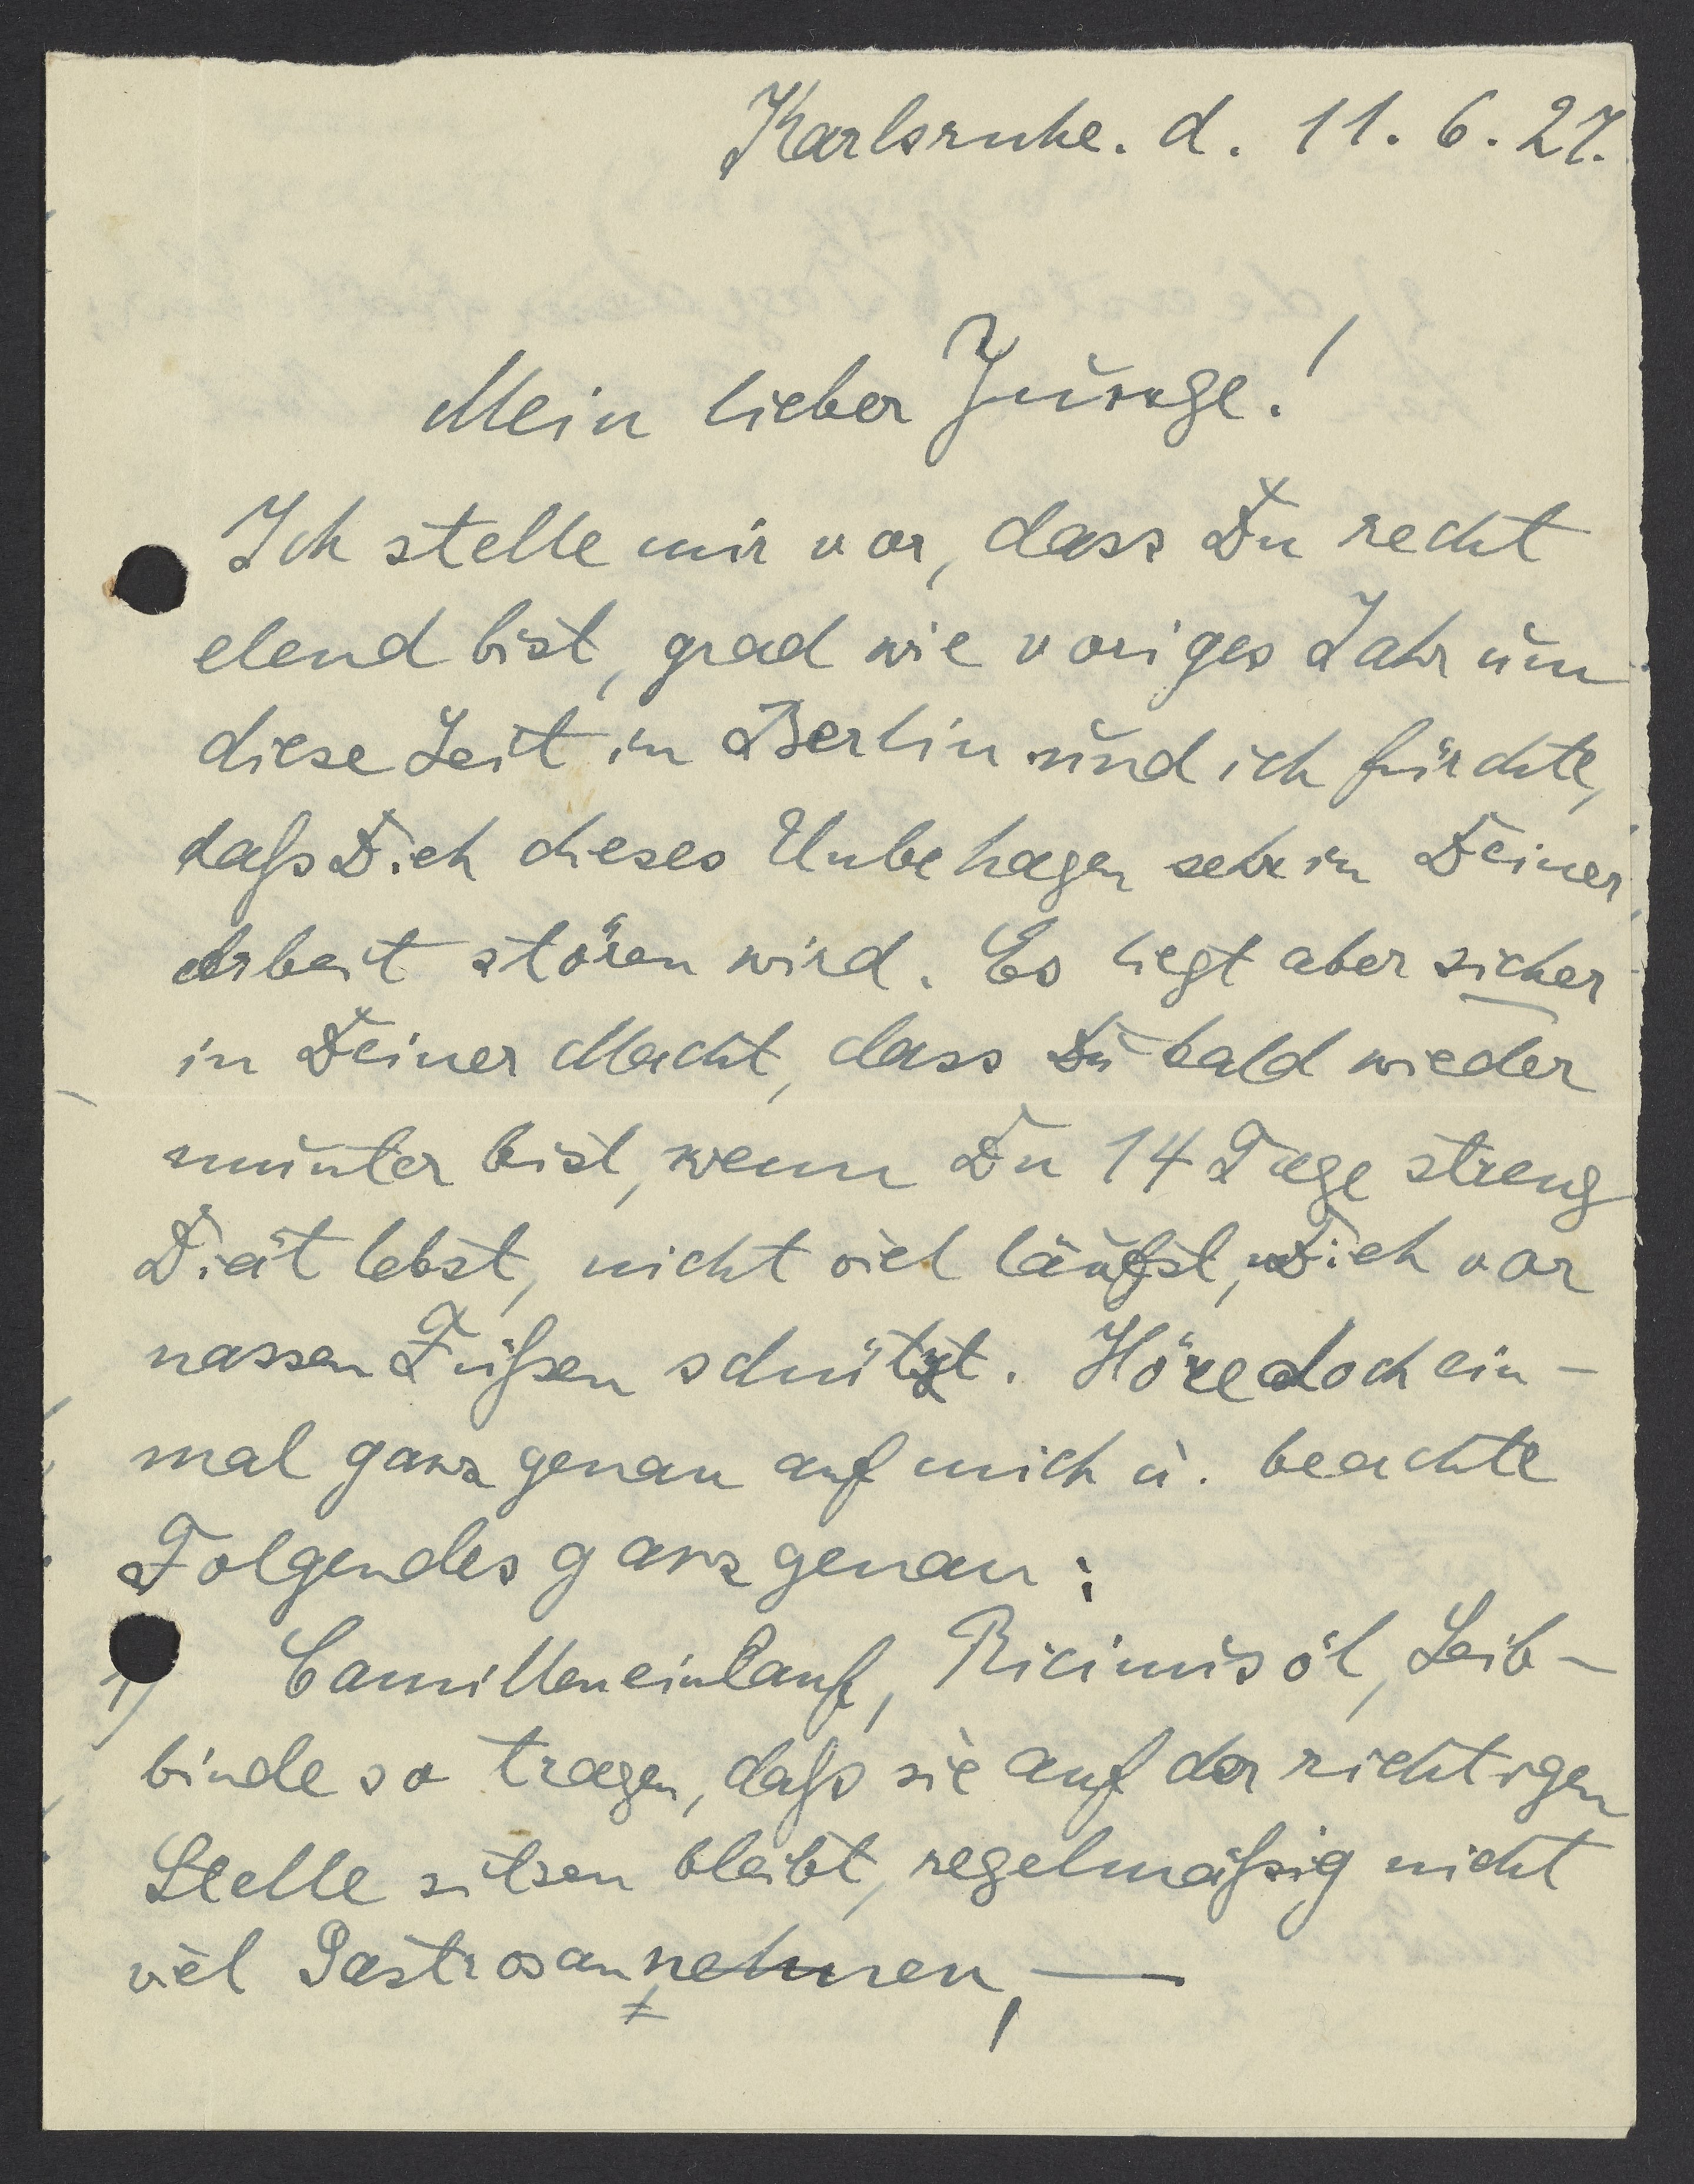 Karlsruhe. d. 11. 6. 27.
Mein lieber Junge!
Ich stelle mir vor, dass Du recht
elend bist, grad wie voriges Jahr um
diese Zeit in Berlin und ich fürchte,
daß Dich dieses Unbehagen sehr in Deiner
Arbeit stören wird. Es liegt aber sicher
in Deiner Macht, dass Du bald wieder
munter bist, wenn Du 14 Tage streng
Diät lebst, nicht viel läufst, Dich vor
nassen Füßen schützt. Höre doch ein-
mal ganz genau auf mich u. beachte
Folgendes ganz genau:
1) Camilleneinlauf, Ricinusöl, Leib-
binde so tragen, daß sie auf der richtigen
Stelle sitzen bleibt, regelmäßig nicht
viel Gastrosan nehmen, —